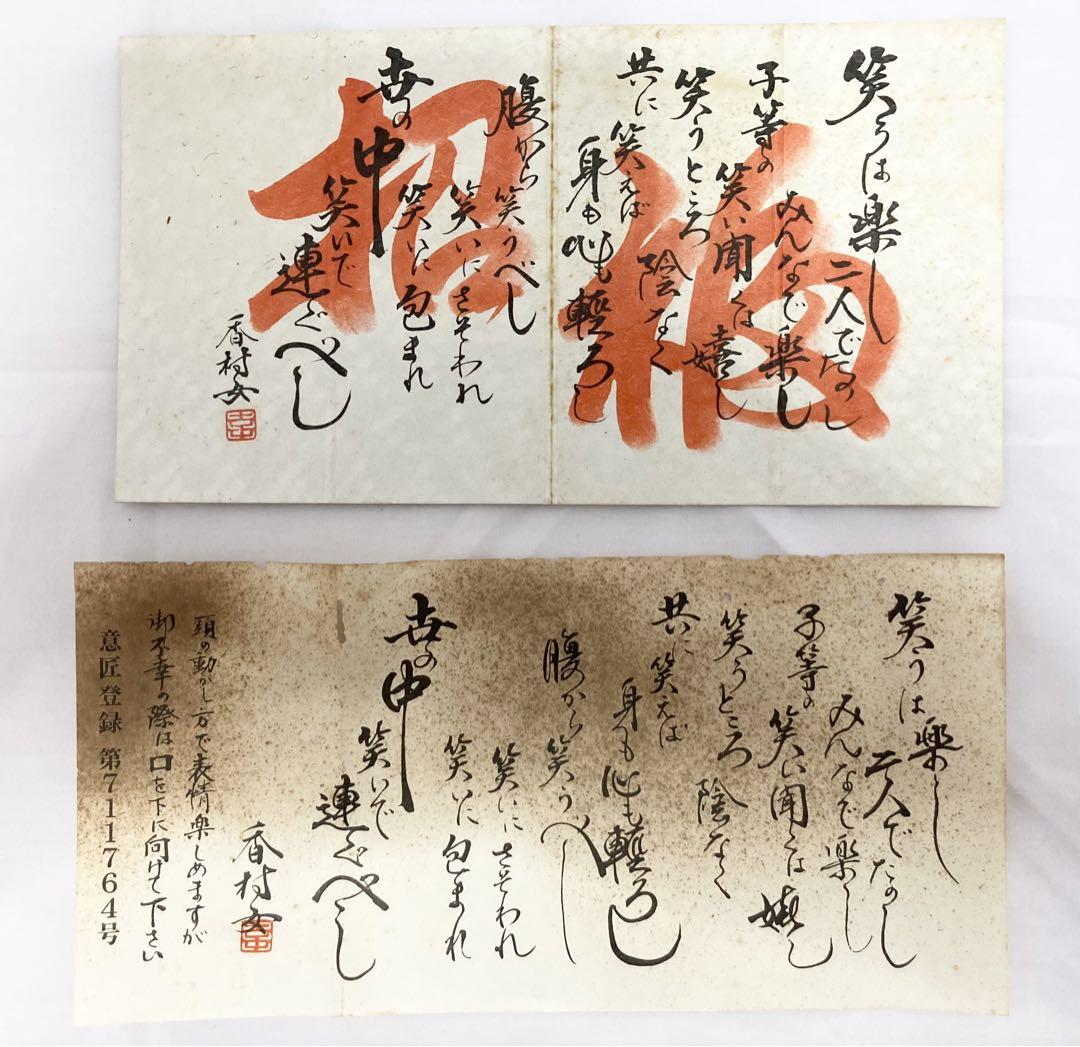 招福
笑うは楽し
二人でたのし
みんなで楽し
子等の
笑い聞くは嬉し
笑うところ
陰なく
共に笑えば
身も心も軽ろし
腹から笑うべし
笑いにさそわれ
笑いに包まれ
世の中
笑いで
連ぐべし
香村女
笑うは楽し
二人でたのし
みんなで楽し
子等の
笑い聞くは嬉し
笑うところ
陰なく
共に笑えば
身も心も軽ろし
腹から笑うべし
笑いにさそわれ
笑いに包まれ
世の中
笑いで
連ぐべし
香村女
頭の動かし方で表情楽しめますが
御不幸の際は口を下に向けて下さい
意匠登録 第711764号